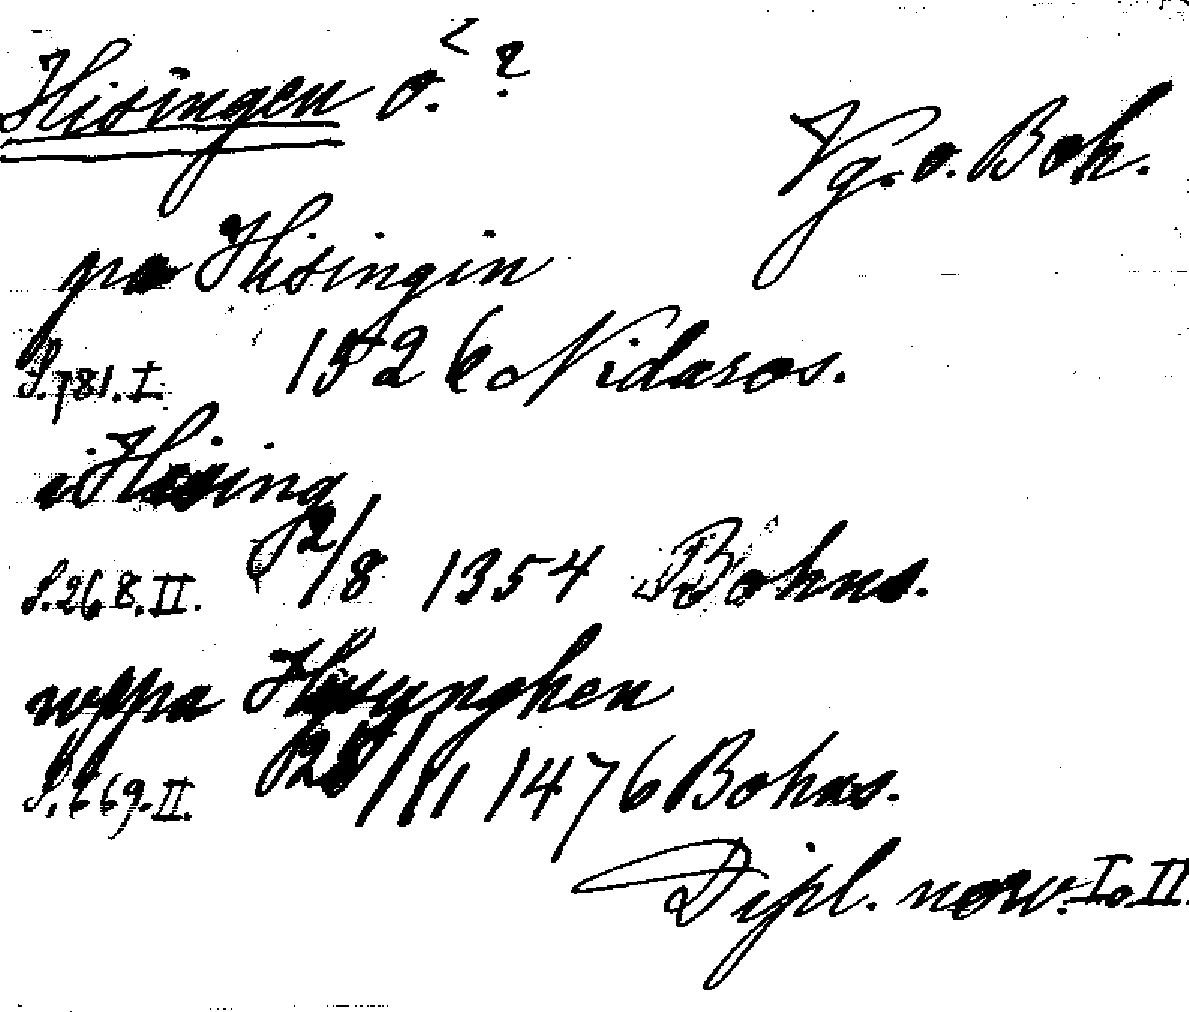 Hisingen ö. < ?
Vg. o. Boh.
pa Hisingin
S. 781. I 1526 Nidaros.
i Hising
S. 268. II. 12/8 1354 Bohus.
uppa Hysynghen
S. 669. II. 11 1476 Bohus.
Dipl. norv. I o. II.